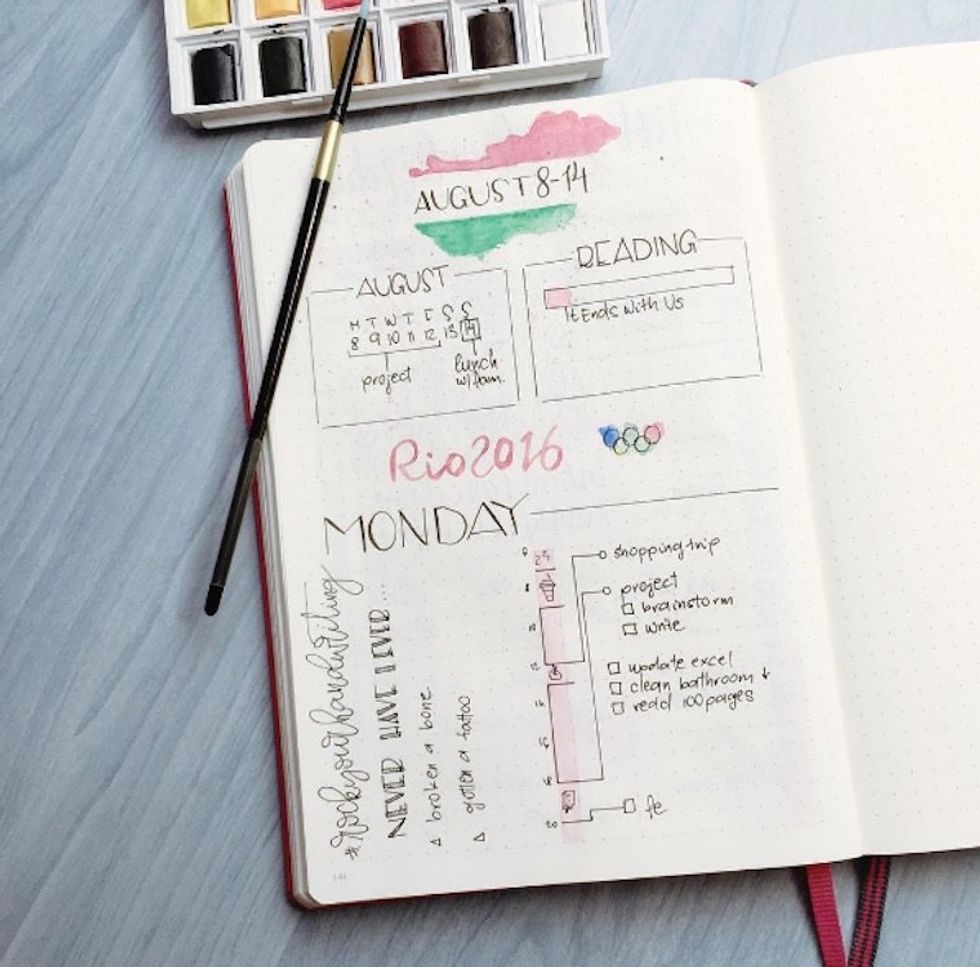 AUGUST 8-14
AUGUST
M T W T F S S
8 9 10 11 12 13 14
project
lunch
w/fam.
READING
It Ends With Us
Rio2016
MONDAY
#rockyourhandwriting
NEVER HAVE I EVER...
broken a bone
gotten a tattoo
shopping trip
project
brainstorm
write
update excel
clean bathroom
read 100 pages